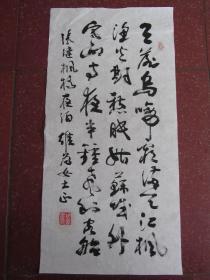 月落烏啼霜滿天江楓
漁火對愁眠姑蘇城外
寒山寺夜半鐘聲到客船
張繼楓橋夜泊 女士正